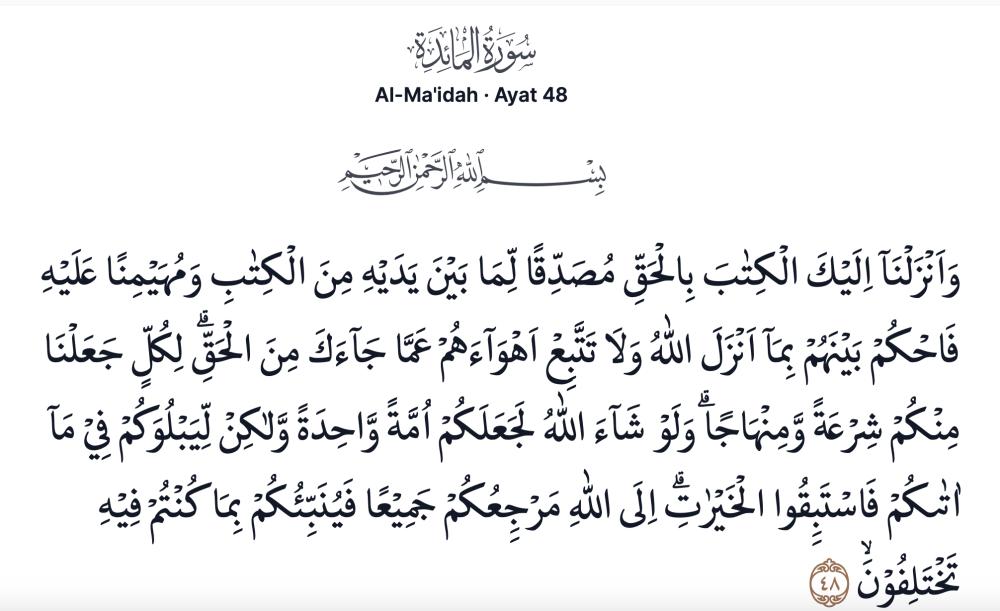 سُورَةُ الْمَائِدَةِ
Al-Ma'idah · Ayat 48
بِسْمِ اللّٰهِ الرَّحْمٰنِ الرَّحِيْمِ
وَاَنْزَلْنَآ اِلَيْكَ الْكِتٰبَ بِالْحَقِّ مُصَدِّقًا لِّمَا بَيْنَ يَدَيْهِ مِنَ الْكِتٰبِ وَمُهَيْمِنًا عَلَيْهِ
فَاحْكُمْ بَيْنَهُمْ بِمَآ اَنْزَلَ اللّٰهُ وَلَا تَتَّبِعْ اَهْوَاۤءَهُمْ عَمَّا جَاۤءَكَ مِنَ الْحَقِّۗ لِكُلٍّ جَعَلْنَا
مِنْكُمْ شِرْعَةً وَّمِنْهَاجًاۗ وَلَوْ شَاۤءَ اللّٰهُ لَجَعَلَكُمْ اُمَّةً وَّاحِدَةً وَّلٰكِنْ لِّيَبْلُوَكُمْ فِيْ مَآ
اٰتٰىكُمْ فَاسْتَبِقُوا الْخَيْرٰتِۗ اِلَى اللّٰهِ مَرْجِعُكُمْ جَمِيْعًا فَيُنَبِّئُكُمْ بِمَا كُنْتُمْ فِيْهِ
تَخْتَلِفُوْنَۙ ٤٨